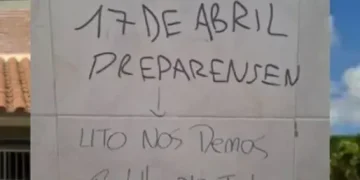 17 DE ABRIL
PREPARENSEN
LITO NOS Demos